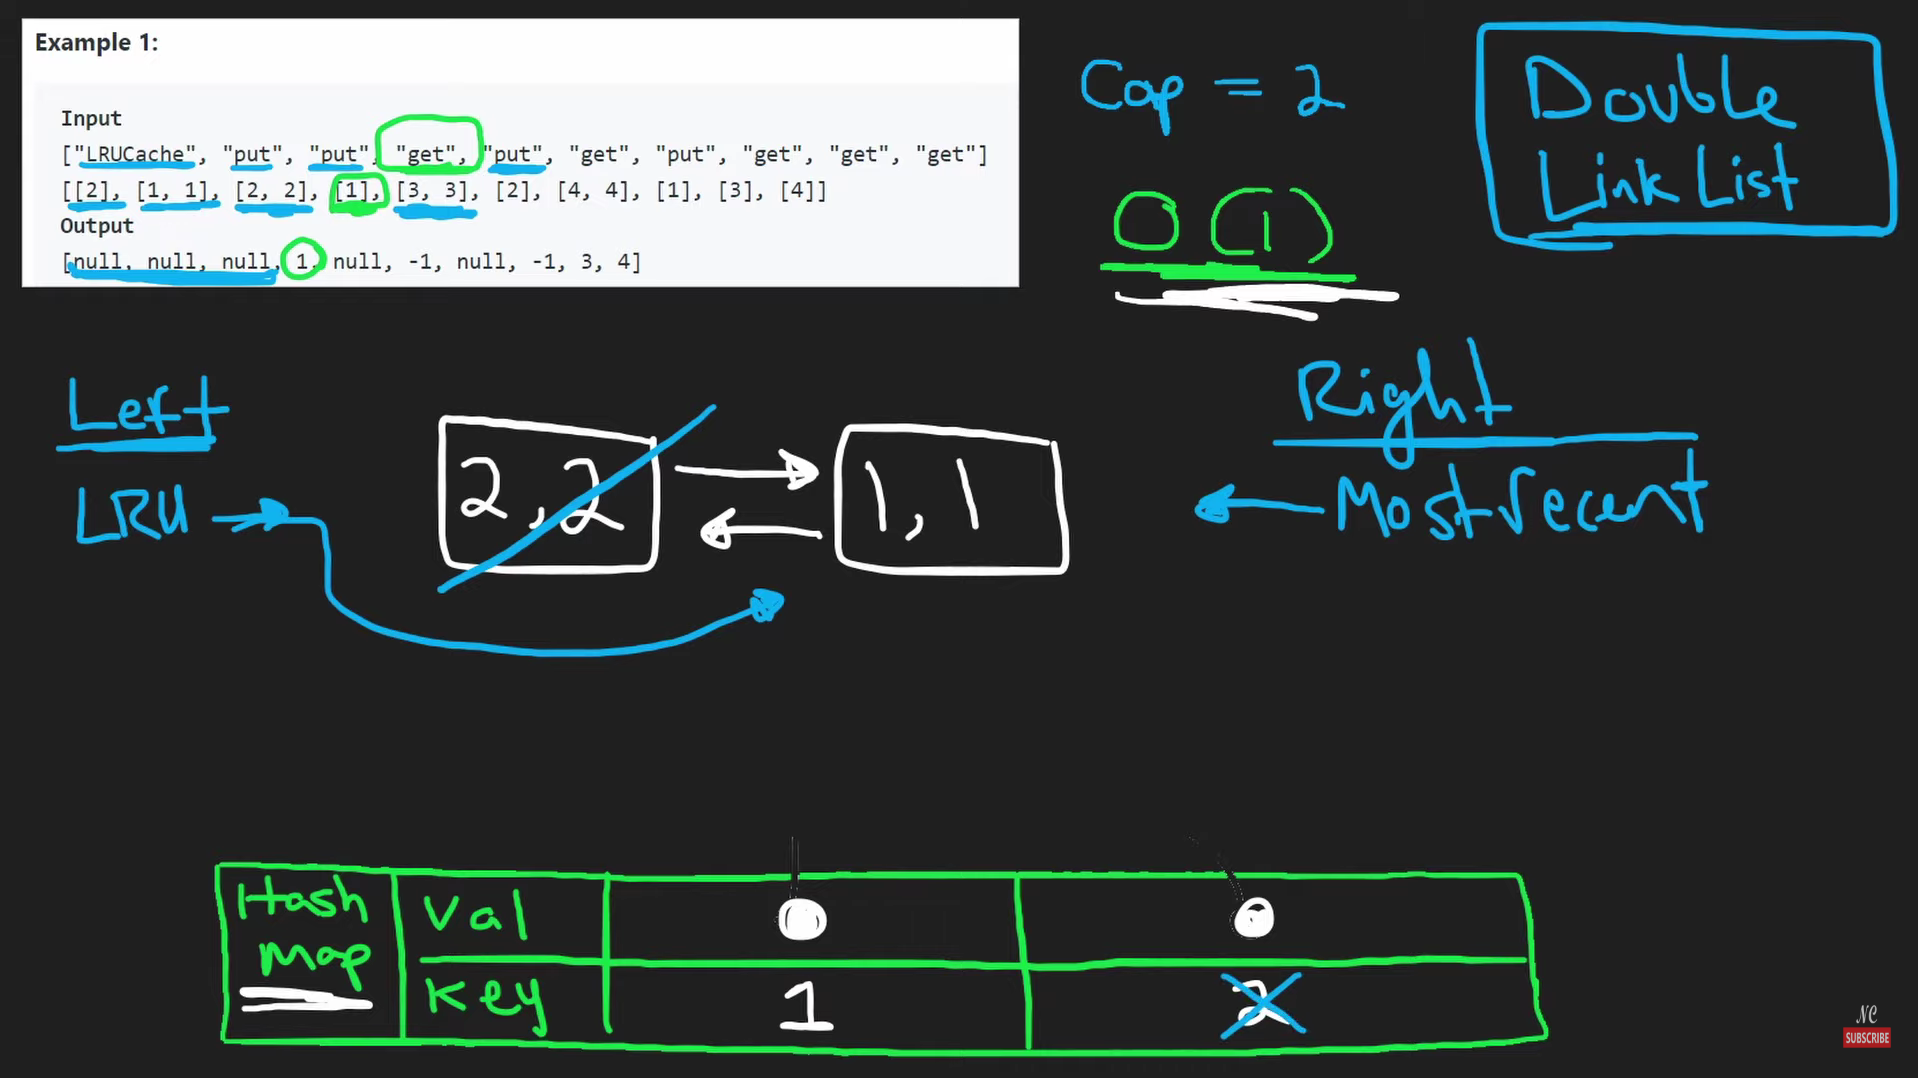 Example 1:
Input
["LRUCache", "put", "put", "get", "put", "get", "put", "get", "get", "get"]
[[2], [1, 1], [2, 2], [1], [3, 3], [2], [4, 4], [1], [3], [4]]
Output
[null, null, null, 1, null, -1, null, -1, 3, 4]
Cap = 2
Double
Link List
O(1)
Left
LRU
2,2
1,1
Right
Most recent
Hash
map
Val
Key
1
2
NC
SUBSCRIBE